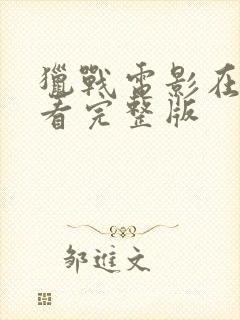 獵戰電影在
看完整版
邹進文